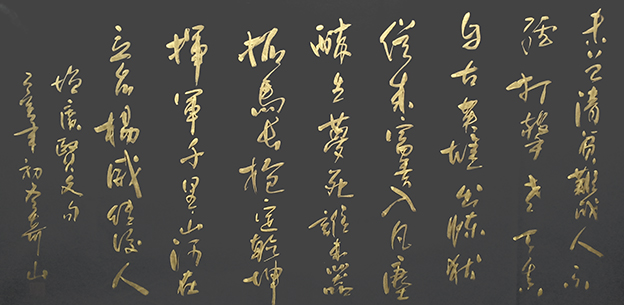 未曾清貧難成人不
經打擊老天真
自古英雄出煉獄
從來富貴入凡塵
醉生夢死誰成器
拓馬長槍定乾坤
揮軍千里山河在
立名揚威傳後人
增廣賢文句
年初山